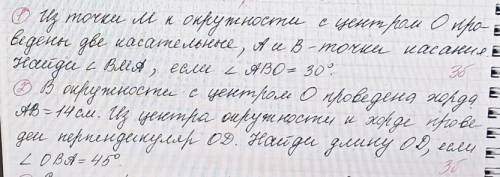 ① Из точки М к окружности с центром О про-
ведены две касательные, А и В - точки касания.
Найди ∠ ВМА, если ∠ АВО = 30°. 3б
② В окружности с центром О проведена хорда
АВ = 14 см. Из центра окружности к хорде прове-
ден перпендикуляр OD. Найди длину OD, если
∠ ОВА = 45°. 3б